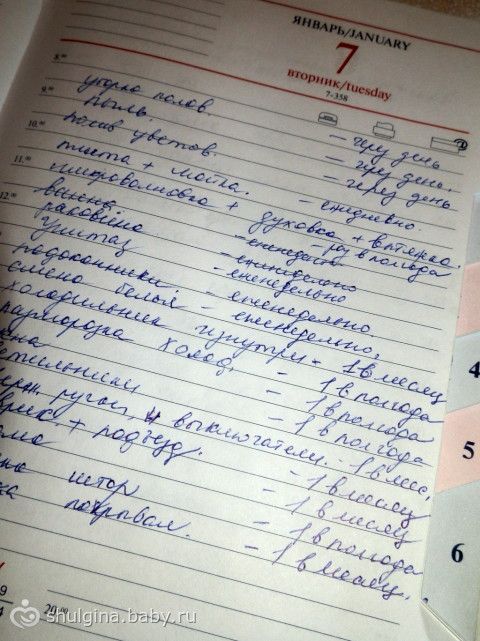 ЯНВАРЬ/JANUARY
7
вторник/tuesday
7-358
8.00
уборка полов. – через день
9.00
пыль. – через день.
10.00
полив цветов. – через день
11.00
плита + мойка. – ежедневно.
микроволновка + духовка + вытяжка.
12.00
ванна – раз в полгода
раковина – еженедельно
унитаз – еженедельно
подоконники. – еженедельно
смена белья – еженедельно.
холодильник изнутри – 1 в месяц
разморозка холод. – 1 в полгода
– 1 в полгода
– 1 в полгода
ручки, и выключатели. – 1 в мес.
+ подъезд. – 1 в месяц
– 1 в месяц
штор – 1 в полгода
покрывал. – 1 в месяц.
20.00
4
5
6
shulgina.baby.ru